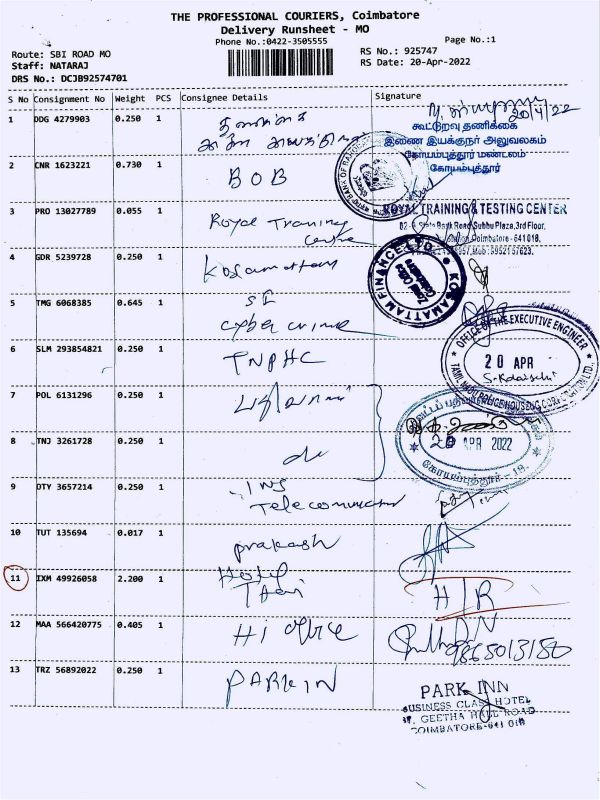 THE PROFESSIONAL COURIERS, Coimbatore
Delivery Runsheet - MO
Phone No.:0422-3505555
Page No.:1
Route: SBI ROAD MO
Staff: NATARAJ
DRS No.: DCJB92574701
RS No.: 925747
RS Date: 20-Apr-2022
S No Consignment No Weight PCS Consignee Details Signature
1 DDG 4279903 0.250 1
20/4/22
கூட்டுறவு தணிக்கை
இணை இயக்குநர் அலுவலகம்
கோயம்புத்தூர் மண்டலம்
கோயம்புத்தூர்
2 CNR 1623221 0.730 1 BOB
3 PRO 13027789 0.055 1 Royal Training
Centre
ROYAL TRAINING & TESTING CENTER
State Bank Road, Subhu Plaza, 3rd Floor,
Coimbatore - 641 018,
4 GDR 5239728 0.250 1 Kosamattam
KOSAMATTAM FINANCE LTD
5 TMG 6068385 0.645 1 SI
Cyber crime
OFFICE OF THE EXECUTIVE ENGINEER
20 APR
TAMIL NADU POLICE HOUSING CORPORATION LTD.,
6 SLM 293854821 0.250 1 TNPHC
7 POL 6131296 0.250 1
20 APR 2022
கோயம்புத்தூர் - 18.
8 TNJ 3261728 0.250 1 do
9 DTY 3657214 0.250 1
Telecommunication
10 TUT 135694 0.017 1 prakash
11 IXM 49926058 2.200 1 Hotel
HJR
12 MAA 566420775 0.405 1 Hi office
9865013180
13 TRZ 56892022 0.250 1 PARK IN
PARK INN
BUSINESS CLASS HOTEL
GEETHA HALL ROAD
COIMBATORE-641 018